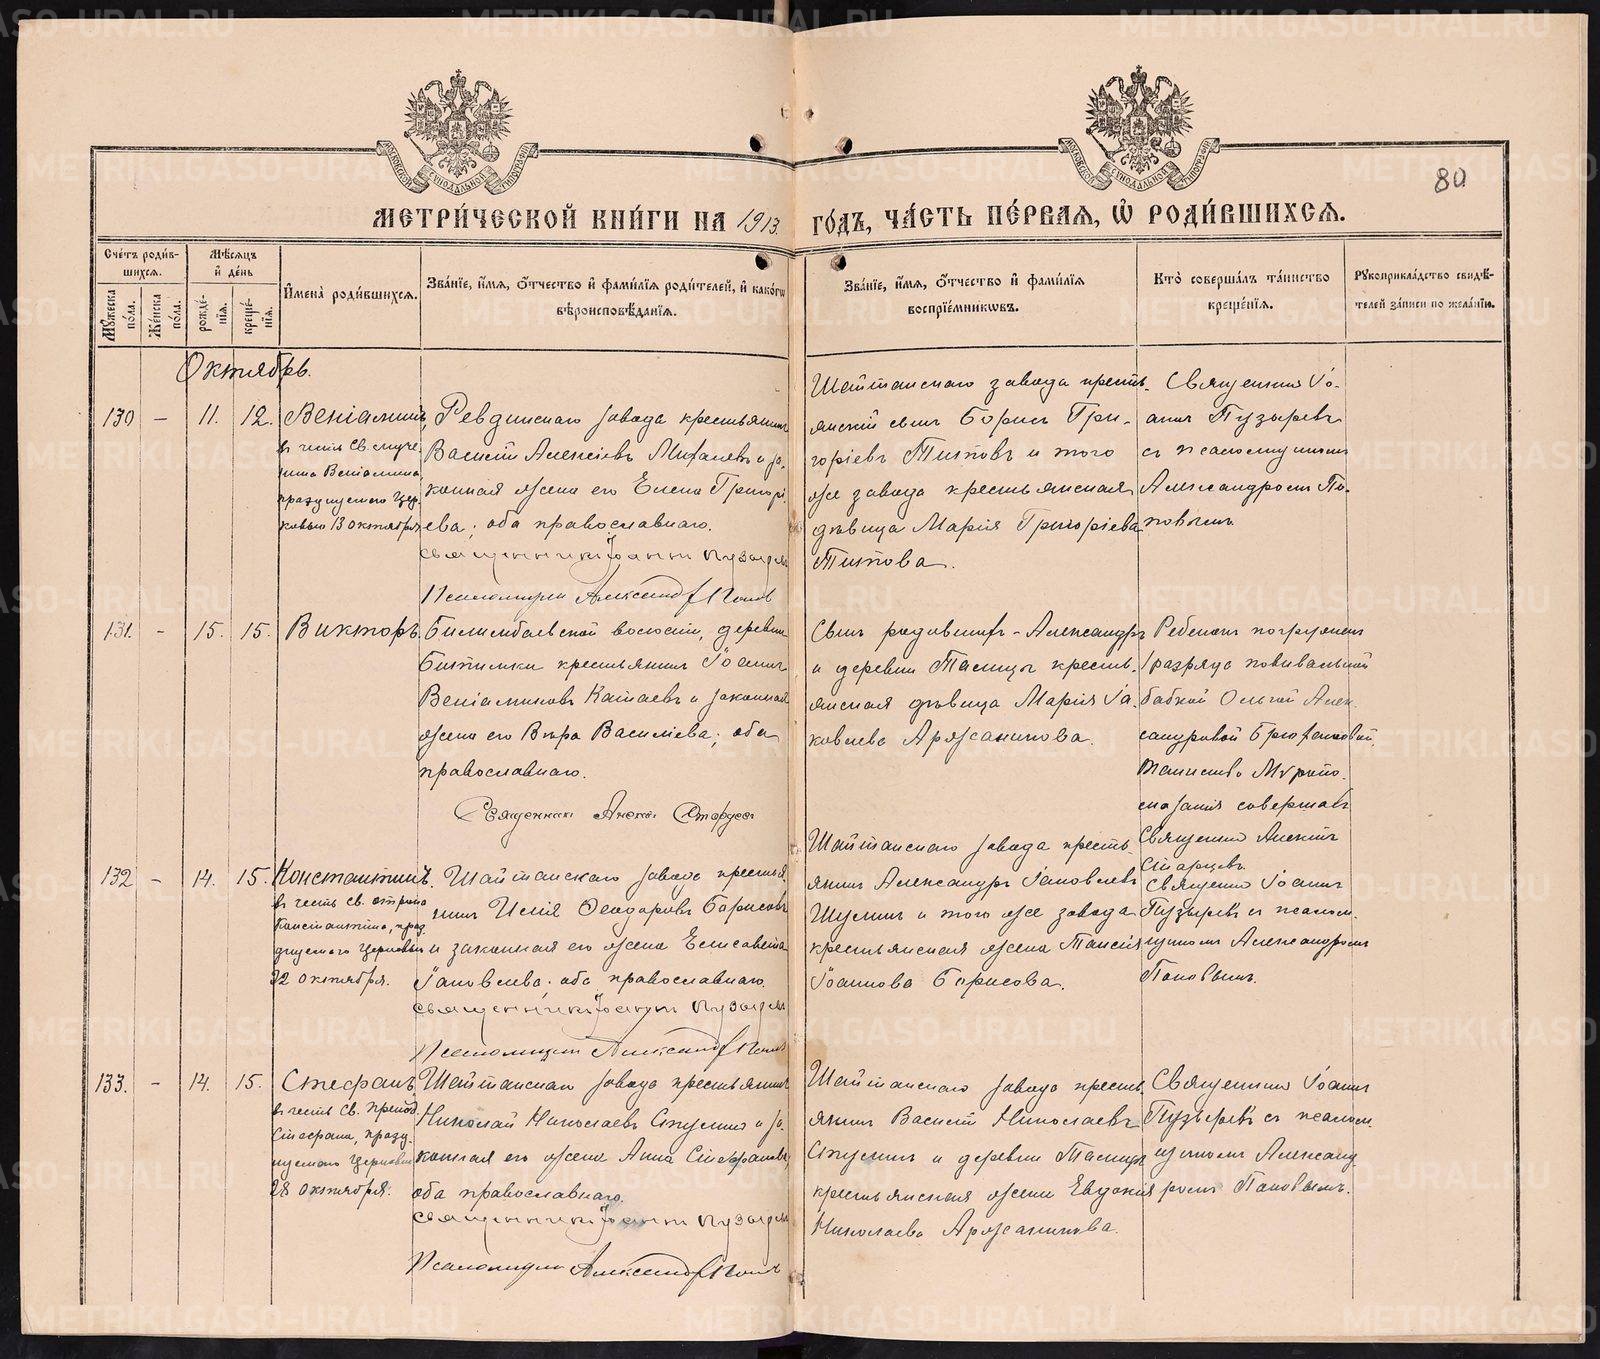 80
МЕТРИ́ЧЕСКОЙ КНИ́ГИ НА 1913 ГО́ДЪ, ЧА́СТЬ ПЕ́РВАЯ, Ѡ҆ РОДИ́ВШИХСЯ.
Сче́тъ роди́в-
шихся.
Мꙋ́жеска по́ла.
Же́нска по́ла.
Мѣ́сяцъ
и҆ де́нь
рожде́-
нїя.
креще́-
нїя.
И҆мена̀ роди́вшихся.
Зва́нїе, и҆́мя, ѻ҆́тчество и҆ фами́лїя роди́телей, и҆ како́гѡ
вѣроисповѣ́данїя.
Зва́нїе, и҆́мя, ѻ҆́тчество и҆ фами́лїя
воспрїе́мникѡвъ.
Кто̀ соверша́лъ та́инство
креще́нїя.
Рꙋкоприкла́дство свидѣ́-
телей за́писи по жела́нїю.
Октябрь.
130 — 11. 12. Веніаминъ,
въ честь Св. муче-
ника Веніамина
празднуемаго Цер-
ковью 13 октября
Ревдинскаго завода крестьянинъ
Василій Алексіевъ и за-
конная жена его Елена Григорі-
ева; оба православнаго.
Священникъ Іоаннъ Пузырев
Псаломщик Александр Попов
Шайтанскаго завода кресть-
янскій сынъ Борисъ Гри-
горіевъ Титовъ и того
же завода крестьянская
дѣвица Марія Григоріева
Титова.
Священникъ Іо-
аннъ Пузыревъ
съ псаломщикомъ
Александромъ По-
повымъ
131. — 15. 15. Викторъ.
Билимбаевской волости, деревни
Битимки крестьянинъ Іоаннъ
Веніаминовъ Катаевъ и законная
жена его Вѣра Василіева; оба
православнаго.
Священникъ
Сынъ - Александръ
и деревни Талицы кресть-
янская дѣвица Марія Іа-
ковлева Аржанникова.
Ребенокъ погруженъ
1 разряда повивальной
бабкой Ольгой Алек-
сандровой
Таинство Мѵропо-
мазанія совершалъ
Священникъ
Старцевъ.
132 — 14. 15. Константинъ.
въ честь св. отрока
Константина, праз-
днуемаго Церковью
22 октября.
Шайтанскаго завода крестья-
нинъ Илія Ѳеодоровъ Борисовъ
и законная его жена Елисавета
Іаковлева; оба православнаго.
Священникъ Іоаннъ Пузырев
Псаломщик Александр Попов
Шайтанскаго завода кресть-
янинъ Александръ Іаковлевъ
и того же завода
крестьянская жена Таисія
Іоаннова Борисова.
Священникъ Іоаннъ
Пузыревъ съ псалом-
щикомъ Александромъ
Поповымъ.
133. — 14. 15. Стефанъ
въ честь Св. препод.
Стефана, празд-
нуемаго Церковью
28 октября.
Шайтанскаго завода крестьянинъ
Николай Николаевъ и за-
конная его жена Анна Стефанова,
оба православнаго.
Священникъ Іоаннъ Пузырев
Псаломщик Александр Попов
Шайтанскаго завода кресть-
янинъ Василій Николаевъ
и деревни Талицы
крестьянская жена Евдокія
Николаева Аржанникова.
Священникъ Іоаннъ
Пузыревъ съ псалом-
щикомъ Александ-
ромъ Поповымъ.
METRIKI.GASO-URAL.RU